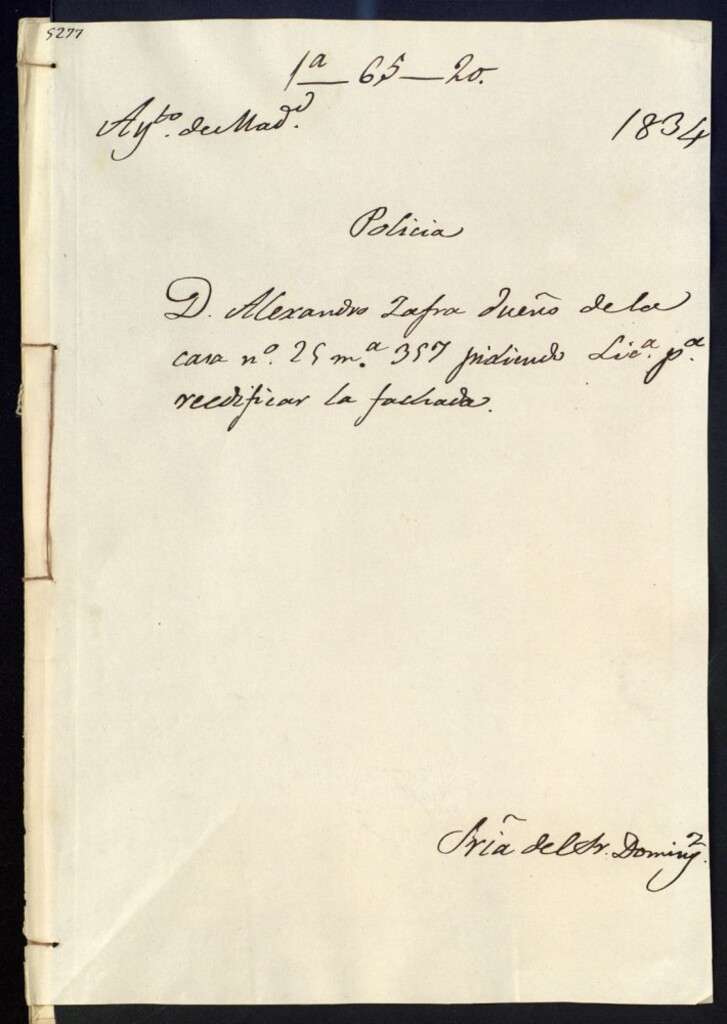 5277
1ª — 65 — 20.
Ayto. de Madd. 1834
Policia
D. Alexandro Zafra dueño de la
casa nº. 25 m.ª 357 pidiendo Lica. pª.
reedificar la fachada.
Sria del Sr. Domingz.